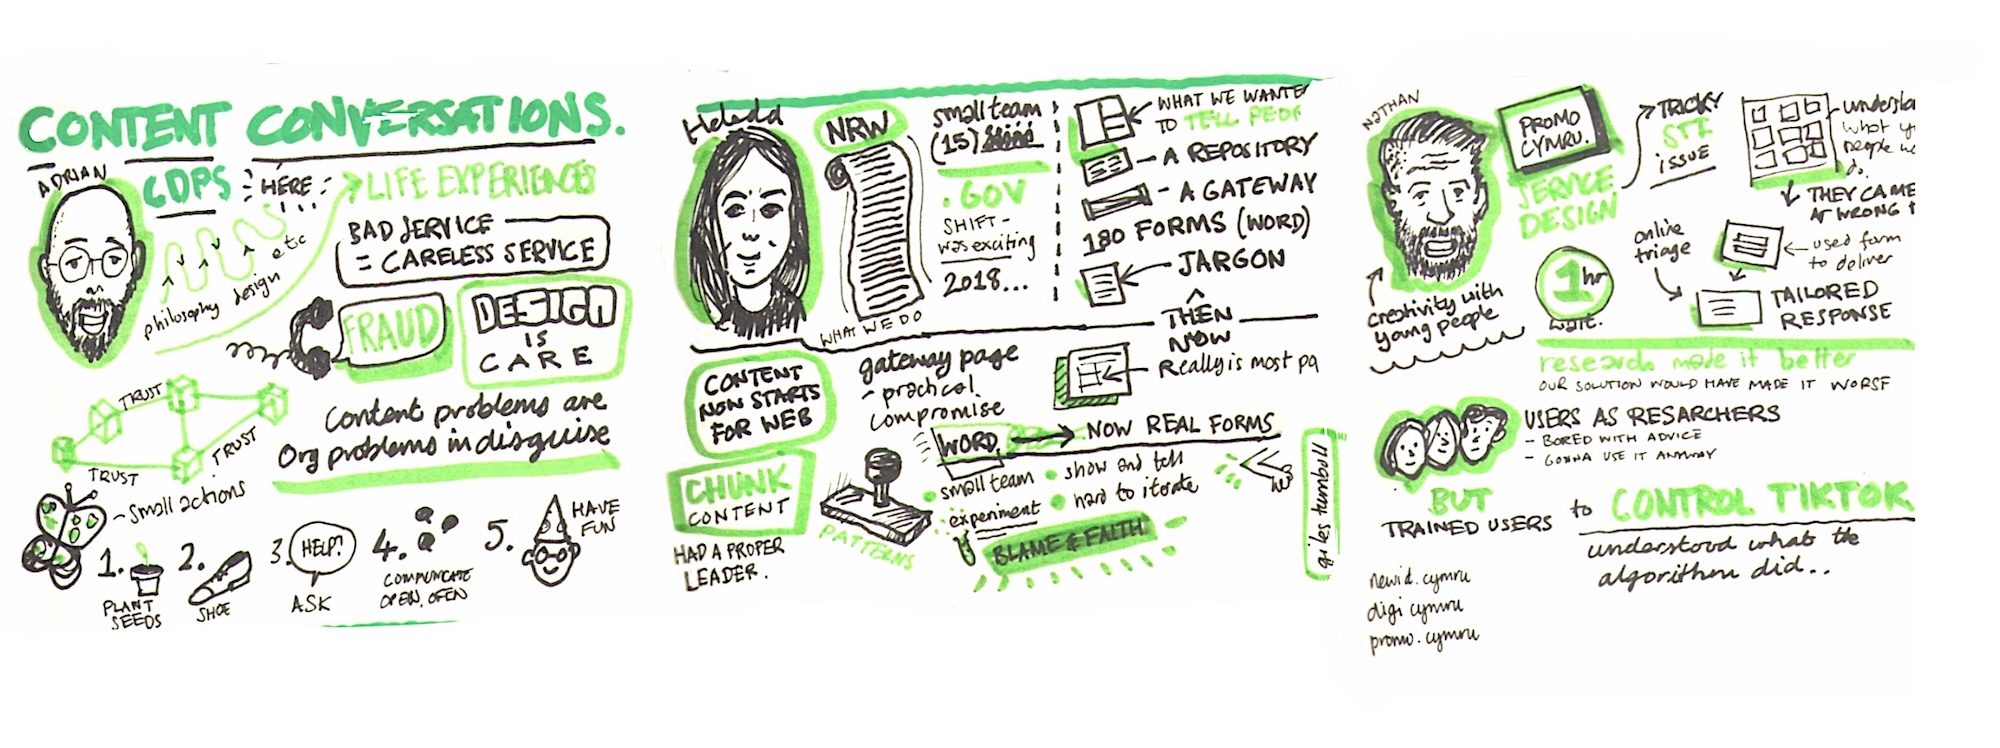 CONTENT CONVERSATIONS.
ADRIAN
CDPS
HERE
LIFE EXPERIENCES
philosophy design etc
BAD SERVICE
= CARELESS SERVICE
FRAUD
DESIGN
IS
CARE
TRUST
TRUST
TRUST
Content problems are
Org problems in disguise
- Small actions
1.
PLANT
SEEDS
2.
SHOE
3.
HELP?
ASK
4.
COMMUNICATE
OPEN, OFEN
5.
HAVE
FUN
Heledd
NRW
WHAT WE DO
small team
(15)
.GOV
SHIFT -
was exciting
2018...
WHAT WE WANTE
TO TELL PEOP
- A REPOSITORY
- A GATEWAY
180 FORMS (WORD)
JARGON
THEN
NOW
Really is most pa
CONTENT
NOW STARTS
FOR WEB
gateway page
- practical
compromise
WORD
NOW REAL FORMS
CHUNK
CONTENT
HAD A PROPER
LEADER.
PATTERNS
small team
show and tell
experiment
hard to iterate
BLAME & FAITH
giles turnbull
NATHAN
creativity with
young people
PROMO
CYMRU.
SERVICE
DESIGN
TRICKY
STI
ISSUE
understa
what y
people w
do.
THEY CAME
AT WRONG
online
triage
used form
to deliver
1hr
wait.
TAILORED
RESPONSE
research made it better
OUR SOLUTION WOULD HAVE MADE IT WORSE
USERS AS RESARCHERS
- BORED WITH ADVICE
- GONNA USE IT ANYWAY
BUT
TRAINED USERS
to CONTROL TIKTOK
understood what the
algorithm did..
newid.cymru
digi cymru
promo.cymru